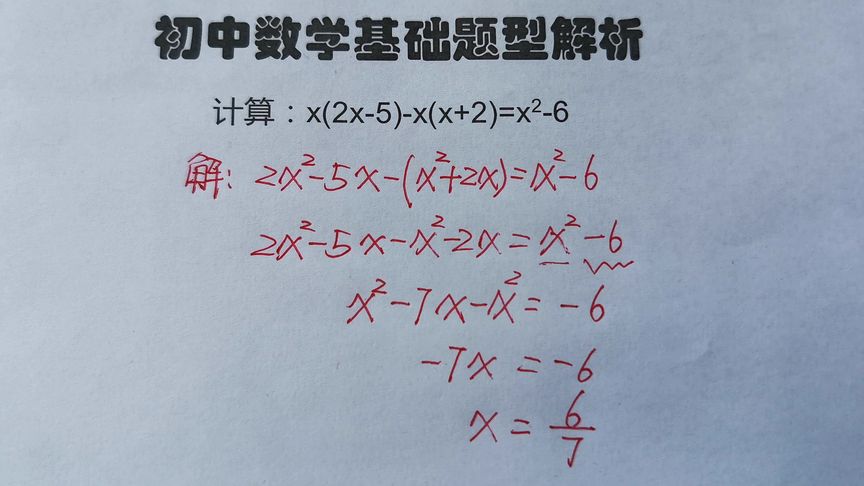 初中数学基础题型解析
计算：x(2x-5)-x(x+2)=x²-6
解: 2x²-5x-(x²+2x)=x²-6
2x²-5x-x²-2x=x²-6
x²-7x-x²=-6
-7x=-6
x=6/7